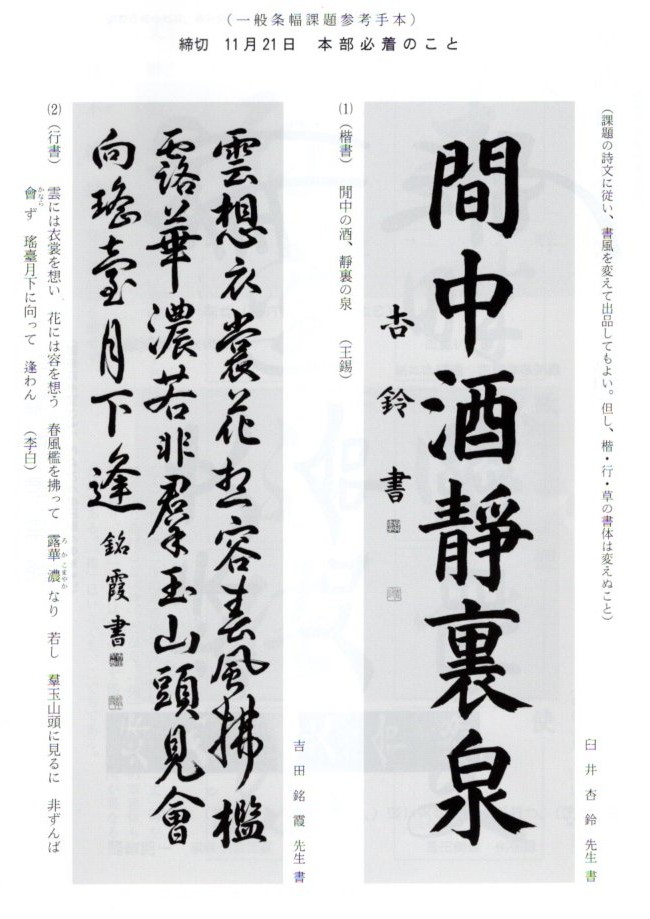 （一般条幅課題参考手本）
締切　11月21日　本部必着のこと
（課題の詩文に従い、書風を変えて出品してもよい。但し、楷・行・草の書体は変えぬこと）
臼井杏鈴先生書
間中酒靜裏泉
杏鈴書
(1)（楷書）　閒中の酒、靜裏の泉　（王錫）
吉田銘霞先生書
雲想衣裳花想容春風拂檻
露華濃若非羣玉山頭見會
向瑤臺月下逢
銘霞書
(2)（行書）　雲には衣裳を想い　花には容を想う　春風檻を拂って　露華濃なり　若し　羣玉山頭に見るに　非ずんば
ろか　こまやか
會ず　瑤臺月下に向って　逢わん　（李白）
かなら